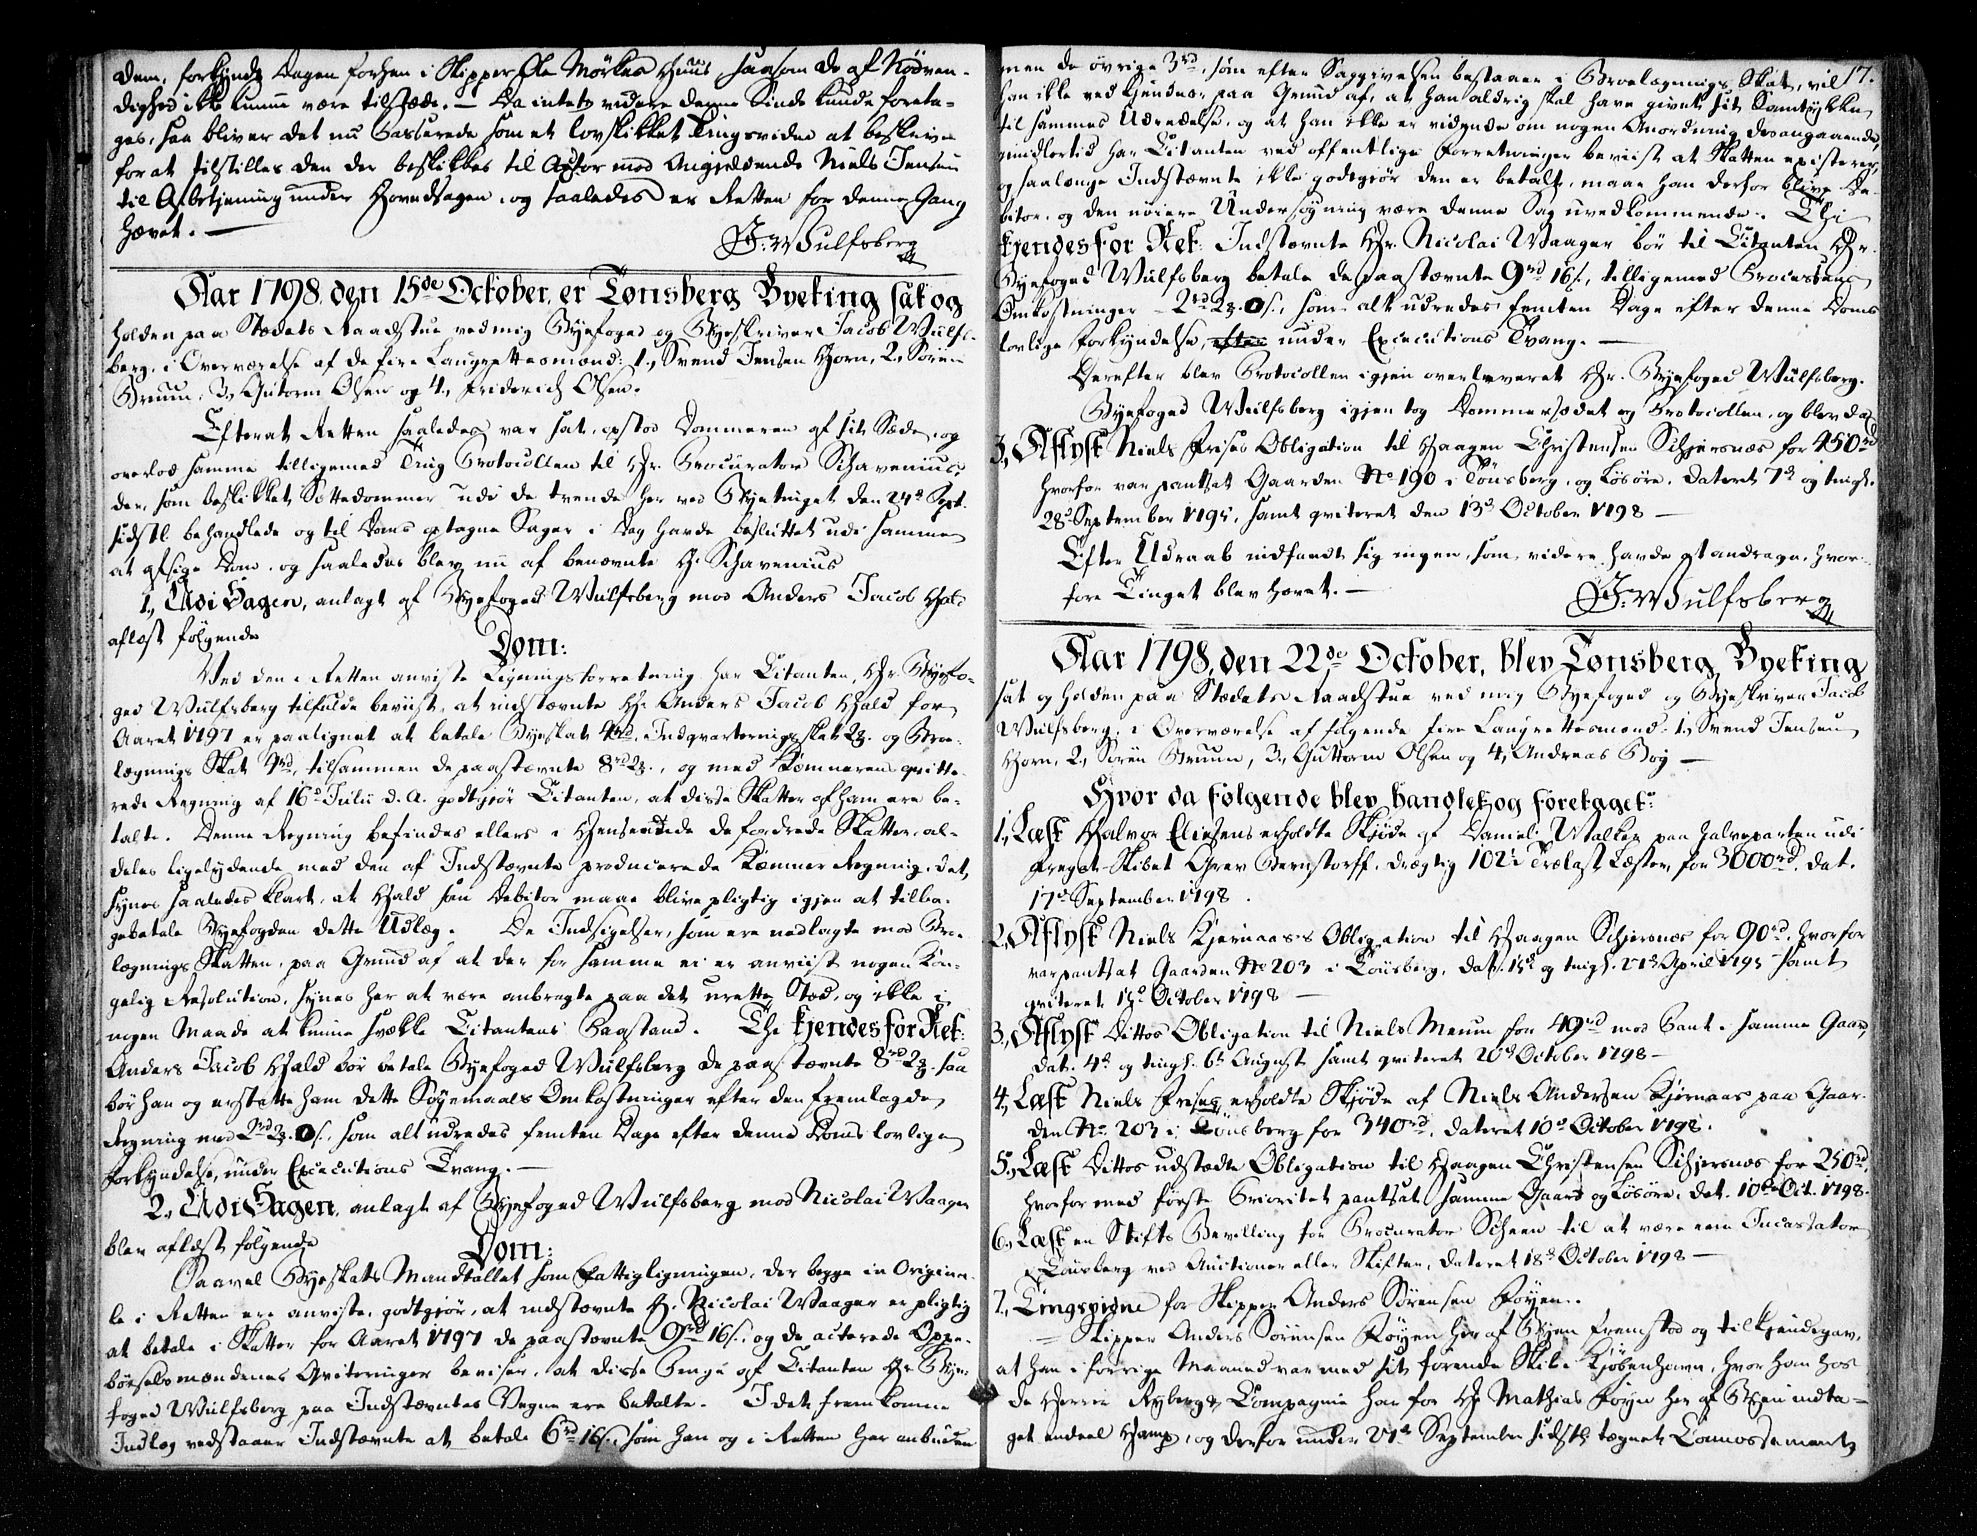 dem, forkynde Dagen forhen i Skipper Ole Mörkes Huus saasom de af Nödven-
dighed ikke kunne være tilstæde. — Da intet videre denne Sinde kunde foreta-
ges, saa bliver det nu Passerede som et lovskikket Tingsvidne at beskrive
for at tilstilles den der beskikkes til Actor mod Angjeldende Niels Jensen
til Afbetjening under Hovedsagen, og saaledes er Retten for denne Gang
hævet. —
J: Wulfsberg
Aar 1798. den 15de October, er Tönsberg Byeting sat og
holden paa Stædets Raadstue ved mig Byefoged og Byeskriver Jacob Wulfs-
berg, i Overværelse af de fire Laugrettesmænd: 1, Svend Jensen Horn, 2, Sören
Bruun, 3, Gutorm Olsen og 4, Friderich Olsen.
Efterat Retten saaledes var sat, opstod Dommeren af sit Sæde, og
overlod samme tilligemed Ting Protocollen til Hr. Procurator Schavenius,
der, som beskikket Sættedommer udi de trende her ved Byetinget den 24de Sept.
sidstl. behandlede og til Doms optagne Sager i Dag havde besluttet udi samme
at afsige Dom, og saaledes blev nu af benævnte Hr. Schavenius
1, Udi Sagen, anlagt af Byefoged Wulfsberg mod Anders Jacob Hald
aflæst følgende
Dom:
Ved den i Retten anviiste Ligningsforretning har Citanten, Hr. Byefo-
ged Wulfsberg tilfulde beviist, at indstævnte Hr. Anders Jacob Hald for
Aaret 1797 er paalignet at betale Byeskat 4rd, Indqvarteringsskat 2 og Broe-
lægnings Skat rd, tilsammen de paastævnte 8rd 2, og med Kæmnerens qvitte-
rede Regning af 16de Julii d. A. godtgjør Citanten, at disse Skatter af ham ere be-
talte. Denne Regning befindes ellers i Henseende de fordrede Skatter al-
deles ligelydende med den af Indstævnte producerede Kæmner Regning, det
synes saaledes klart, at Hald som Debitor maae blive pligtig igjen at tilba-
gebetale Byefogden dette Udlæg. De Indsigelser, som ere nedlagte mod Bro-
lægnings Skatten, paa Grund af at der for samme ei er anviist nogen Kon-
gelig Resolution, synes her at være anbragte paa det urette Sted, og ikke i
nogen Maade at kunne svække Citantens Paastand. Thi kjendes for Ret:
Anders Jacob Hald bör betale Byefoged Wulfsberg de paastævnte 8rd 2. saa
bör han og erstatte ham dette Søgemaals Omkostninger efter den fremlagde
Regning med 2rd 2. 0 s., som alt udredes femten Dage efter denne Doms lovlige
Forkyndelse, under Executions Tvang. —
2, Udi Sagen, anlagt af Byefoged Wulfsberg mod Nicolai Waager
blev aflæst følgende
Dom:
Saavel Byeskats Mandtallet som Fattigligningen, der begge in Origina-
le i Retten ere anviste, godtgjør, at indstævnte Hr. Nicolai Waager er pligtig
at betale i Skatter for Aaret 1797 de paastævnte 9rd 16 s., og de acterede Oppe-
börselsmændenes Qviteringer beviser, at disse Penge af Citanten Hr. Bye-
foged Wulfsberg paa Indstævntes Vegne ere betalte. I det fremkomne
Indlæg vedstaaer Indstævnte at betale 6rd 16 s., som han og i Retten har anbuden
17.
men de övrige 3rd, som efter Saggivelsen bestaaer i Broelægnings Skat, vil
han ikke vedkjendes, paa Grund af, at han aldrig skal have givet sit Samtykke
til sammes Udredelse, og at han ikke er vidende om nogen Anordning desangaaende,
imidlertid har Citanten ved offentlige Forretninger beviist at Skatten existerer,
og saalænge Indstævnte ikke godtgiör den er betalt, maae han derfor blive De-
bitor, og den nöiere Undersögning være denne Sag uvedkommende. Thi
kjendes for Ret: Indstævnte Hr. Nicolai Waager bör til Citanten Hr.
Byefoged Wulfsberg betale de paastævnte 9rd 16 s., tilligemed Processens
Omkostninger 2rd 2. 0 s., som alt udredes femten Dage efter denne Doms
lovlige Forkyndelse, under Executions Tvang. —
Derefter blev Protocollen igjen overleveret Hr. Byefoged Wulfsberg.
Byefoged Wulfsberg igjen tog Dommersædet og Protocollen, og blev da
3, Aflyst Niels Freses Obligation til Haagen Christensen Schjersnæs for 450rd
hvorfor var pantsat Gaarden No 190 i Tönsberg, og Lösöre. Dateret 7de og tingl.
28de September 1795, samt qviteret den 13de October 1798 —
Efter Udraab indfandt sig ingen, som videre havde at andrage, hvor-
fore Tinget blev hævet. —
J: Wulfsberg
Aar 1798, den 22de October, blev Tönsberg Byeting
sat og holden paa Stædets Raadstue ved mig Byefoged og Byeskriver Jacob
Wulfsberg, i Overværelse af følgende fire Laugrettesmænd: 1, Svend Jensen
Horn, 2, Sören Bruun, 3, Guttorm Olsen og 4, Andreas Bög —
Hvor da følgende blev handlet og foretaget:
1, Læst Halvor Eliesens erholdte Skjöde af Daniel Walker paa halveparten udi
Fregat-Skibet Grev Bernstorff, drægtig 102½ Trælast Læster, for 3000rd. dat.
17de September 1798.
2, Aflyst Niels Kjernaas's Obligation til Haagen Schjersnæs for 90rd, hvorfor
var pantsat Gaarden No 203 i Tönsberg, dat. 15de og tingl. 21de April 1795 samt
qviteret 15de October 1798 —
3, Aflyst Dittos Obligation til Niels Meum for 49rd mod Pant i samme Gaard,
dat. 4de og tingl. 6te August samt qviteret 20de October 1798 —
4, Læst Niels Freses erholdte Skjöde af Niels Andersen Kjernaas paa Gaar-
den No. 203 i Tönsberg for 340rd, dateret 10de October 1798.
5, Læst Dittos udstædte Obligation til Haagen Christensen Schjersnæs for 250rd,
hvorfor med første Prioritet pantsat samme Gaard og Lösöre, dat. 10de Oct. 1798.
6, Læst en Stifts Bevilling for Procurator Scheen til at være Incassator
i Tönsberg ved Auctioner eller Skifter, dateret 18de October 1798 —
7, Tingsvidne for Skipper Anders Sörensen Föyen.
Skipper Anders Sörensen Föyen her af Byen fremstod og tilkjendegav,
at han i forrige Maaned var med sit førende Skib i Kjøbenhavn, hvor han hos
de Herrer Ryberg & Compagnie har for Hr. Mathias Föyn her af Byen indta-
get endeel Hamp, og derfor under 21de September sidstl. tegnet Connossement